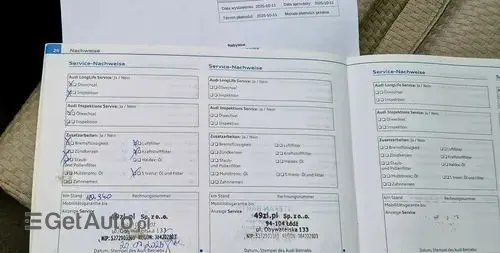 Data wystawienia: 2025-10-11
Data sprzedaży: 2025-10-11
Termin płatności: 2025-10-11
Metoda płatności: przelew
Nabywca
24 Nachweise
Service-Nachweise
Service-Nachweise
Service-Nachweise
Audi LongLife Service: Ja / Nein
Ölwechsel
Inspektion
Audi Inspektions Service: Ja / Nein
Ölwechsel
Inspektion
Zusatzarbeiten: Ja / Nein
Bremsflüssigkeit
Luftfilter
Zündkerzen
Kraftstofffilter
Staub- und Pollenfilter
Haldex: Öl
Multitronic: Öl
S tronic: Öl und Filter
Zahnriemen
km Stand
Rechnungsnummer
Mobilitätsgarantie bis
Anzeige Service
49zl.pl Sp. z o.o.
ul. Obywatelska 133
Datum, Stempel des Audi Betriebs
Audi LongLife Service: Ja / Nein
Ölwechsel
Inspektion
Audi Inspektions Service: Ja / Nein
Ölwechsel
Inspektion
Zusatzarbeiten: Ja / Nein
Bremsflüssigkeit
Luftfilter
Zündkerzen
Kraftstofffilter
Staub- und Pollenfilter
Haldex: Öl
Multitronic: Öl
S tronic: Öl und Filter
Zahnriemen
km Stand
Rechnungsnummer
Mobilitätsgarantie bis
Anzeige Service
49zl.pl Sp. z o.o.
94-104 Łódź
ul. Obywatelska 133
Datum, Stempel des Audi Betriebs
Audi LongLife Service: Ja / Nein
Ölwechsel
Inspektion
Audi Inspektions Service: Ja / Nein
Ölwechsel
Inspektion
Zusatzarbeiten: Ja / Nein
Bremsflüssigkeit
Luftfilter
Zündkerzen
Kraftstofffilter
Staub- und Pollenfilter
Haldex: Öl
Multitronic: Öl
S tronic: Öl und Filter
Zahnriemen
km Stand
Rechnungsnummer
Mobilitätsgarantie bis
Anzeige Service
Datum, Stempel des Audi Betriebs
GetAuto.pl